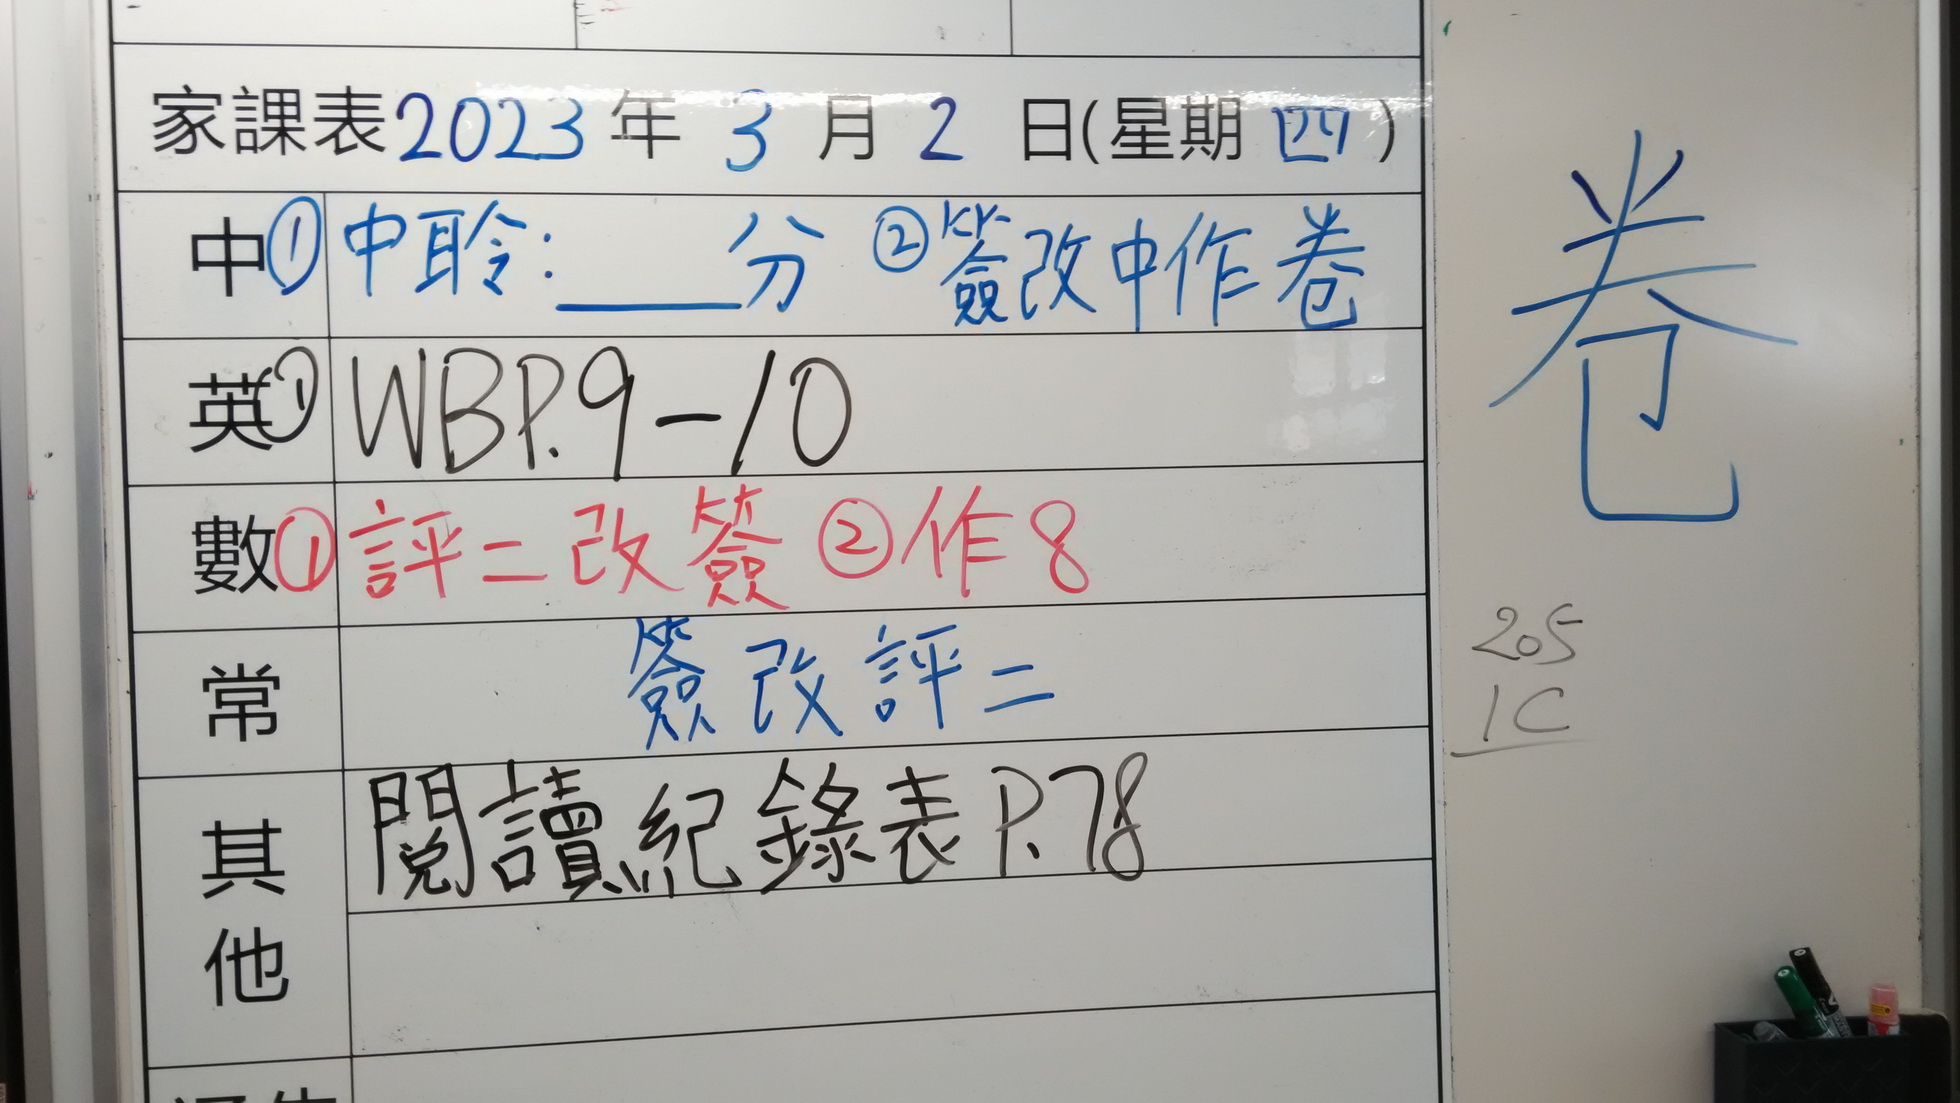 家課表2023年3月2日(星期四)
中①中聆:____分 ②簽改中作卷
英①WBP.9-10
數①評二改簽 ②作8
常 簽改評二
其他 閱讀紀錄表P.78
卷
205
1C